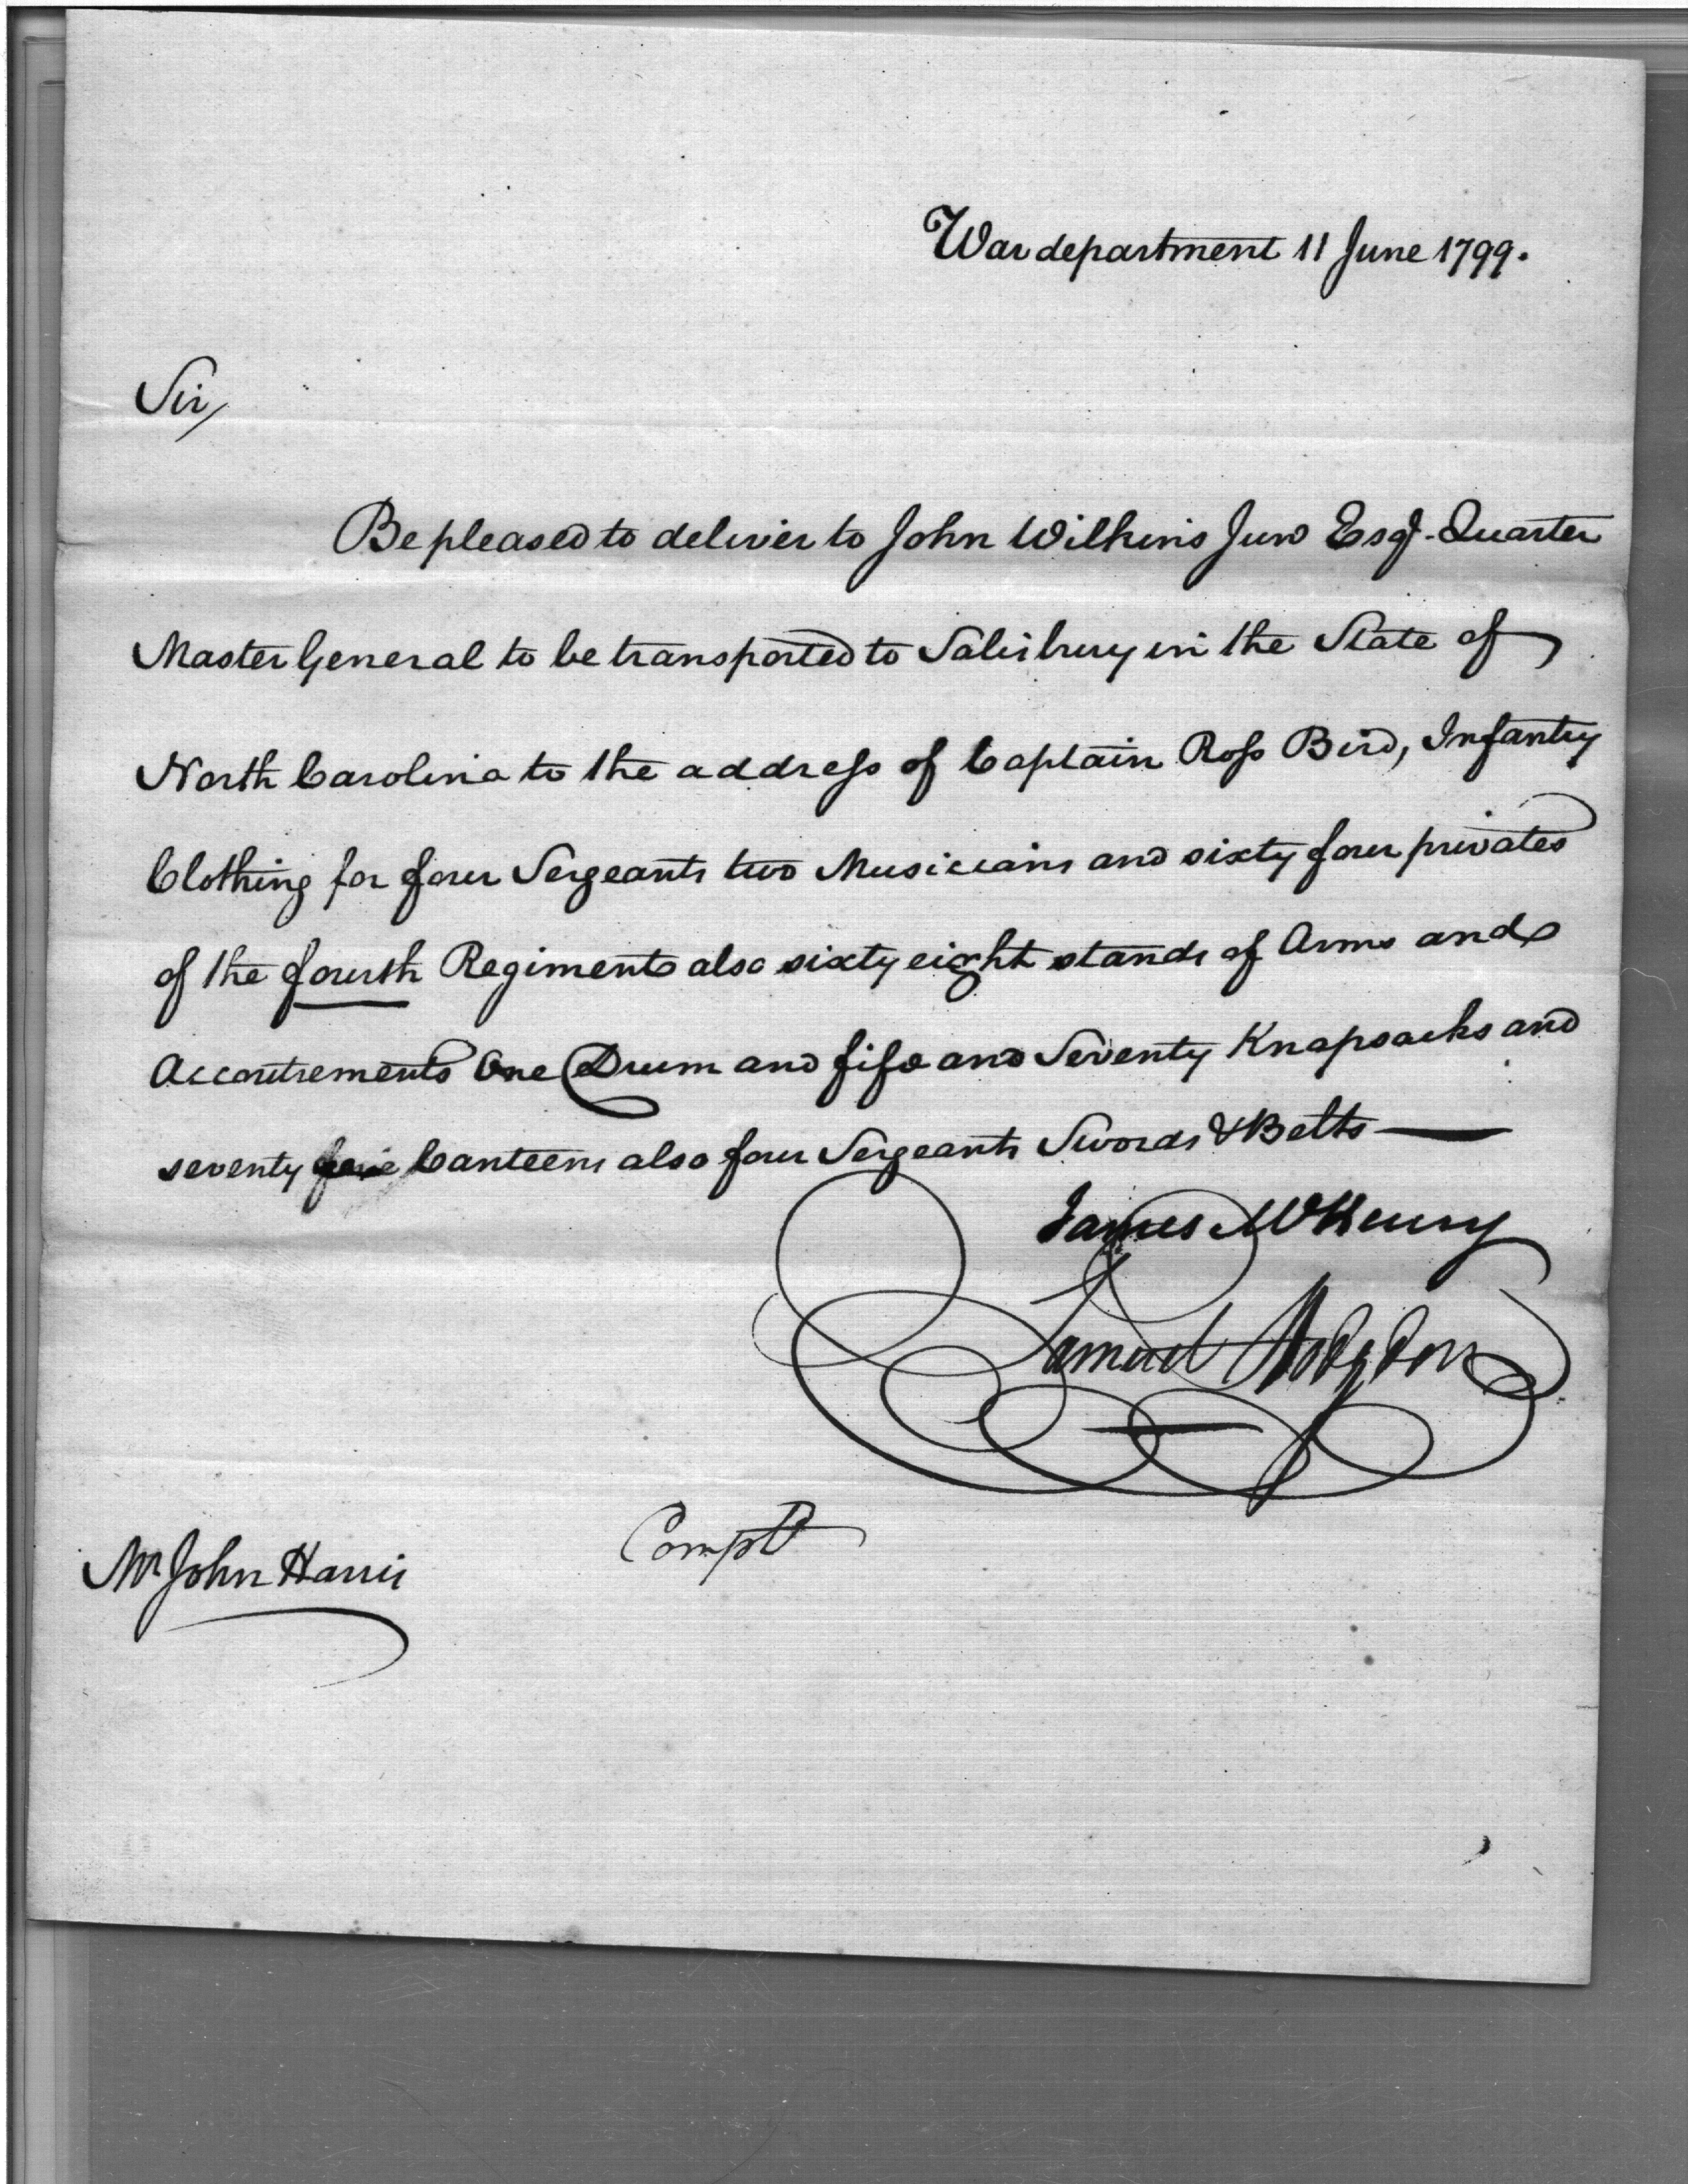 War department 11 June 1799.
Sir,
Be pleased to deliver to John Wilkins Junr Esqr. Quarter
Master General to be transported to Salisbury in the State of
North Carolina to the address of Captain Ross Bird, Infantry
Clothing for four Sergeants two Musicians and sixty four privates
of the fourth Regiment also sixty eight stands of Arms and
Accoutrements One Drum and fife and Seventy Knapsacks and
seventy Canteens also four Sergeants Swords & Belts
James McHenry
Samuel Hodgdon
Compd
Mr John Harris